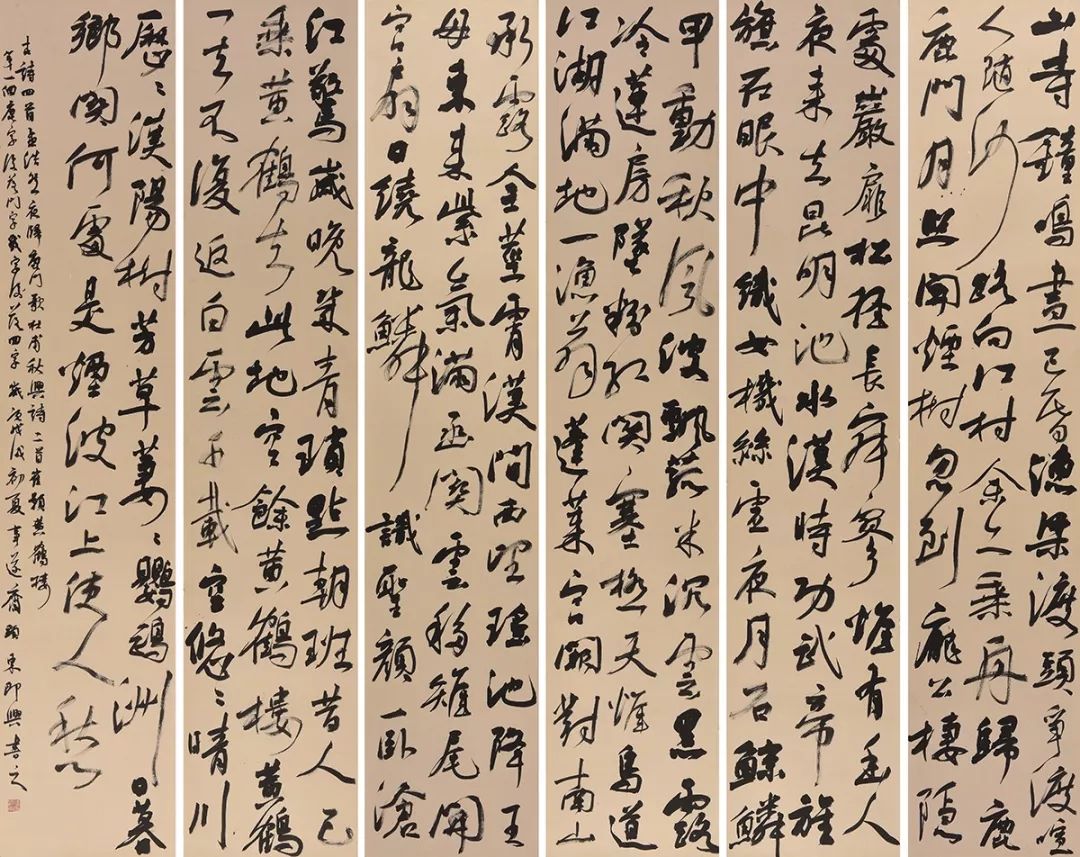 山寺鐘鳴晝已昏漁梁渡頭爭渡喧
人隨沙路向江村余亦乘舟歸鹿
鹿門月照開煙樹忽到龐公棲隱
處巖扉松徑長寂寥惟有幽人
夜來去昆明池水漢時功武帝旌
旗在眼中織女機絲虛夜月石鯨鱗
甲動秋風波飄菰米沉雲黑露
冷蓮房墜粉紅關塞極天惟鳥道
江湖滿地一漁翁蓬萊宮闕對南山
承露金莖霄漢間西望瑤池降王
母東來紫氣滿函關雲移雉尾開
宮扇日繞龍鱗識聖顏一臥滄
江驚歲晚幾青瑣點朝班昔人已
乘黃鶴去此地空餘黃鶴樓黃鶴
一去不復返白雲千載空悠〻晴川
歷〻漢陽樹芳草萋〻鸚鵡洲日暮
鄉關何處是煙波江上使人愁
古詩四首孟浩然夜歸鹿門歌杜甫秋興詩二首崔顥黃鶴樓
一個鹿字後落門字幾字後落字歲庚戌初夏即興書之